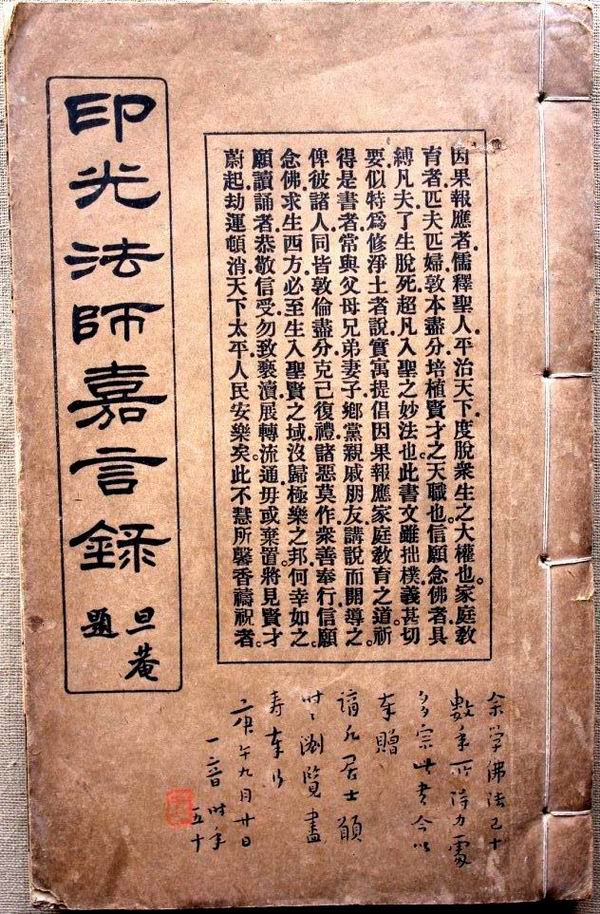 印光法師嘉言錄
旦菴
題
因果報應者儒釋聖人平治天下度脫衆生之大權也。家庭敎
育者匹夫匹婦敦本盡分培植賢才之天職也。信願念佛者具
縛凡夫了生脫死超凡入聖之妙法也此書文雖拙樸義甚切
要似特爲修淨土者說實寓提倡因果報應家庭敎育之道。祈
得是書者常與父母兄弟妻子鄉黨親戚朋友講說而開導之
俾彼諸人同皆敦倫盡分克己復禮諸惡莫作衆善奉行信願
念佛求生西方必至生入聖賢之域沒歸極樂之邦何幸如之。
願讀誦者恭敬信受勿致褻瀆展轉流通毋或棄置將見賢才
蔚起劫運頓消天下太平人民安樂矣。此不慧所馨香禱祝者。
余學佛法已十
數年所得力處
多宗此書今以
奉贈
謫凡居士願
時〻瀏覽盡
壽奉行
庚午九月廿日
一音時年
五十